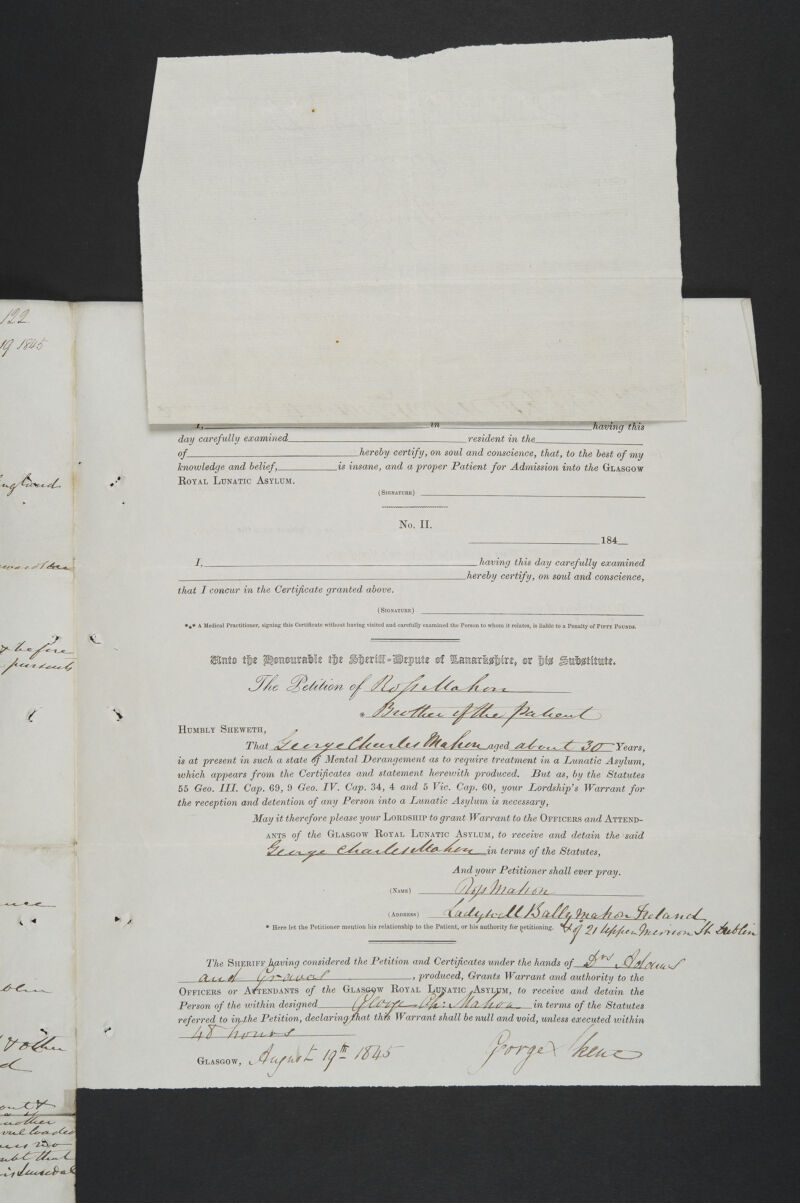 122
19 1845
I, in having this
day carefully examined resident in the
of hereby certify, on soul and conscience, that, to the best of my
knowledge and belief, is insane, and a proper Patient for Admission into the GLASGOW
ROYAL LUNATIC ASYLUM.
(SIGNATURE)
No. II.
184
I, having this day carefully examined
hereby certify, on soul and conscience,
that I concur in the Certificate granted above.
(SIGNATURE)
*** A Medical Practitioner, signing this Certificate without having visited and carefully examined the Person to whom it relates, is liable to a Penalty of FIFTY POUNDS.
Unto the Honourable the Sheriff-Depute of Lanarkshire, or his Substitute.
The Petition of Ross Mahon
* Brother of the Patient
HUMBLY SHEWETH,
That George Charles Mahon aged about 30 Years,
is at present in such a state of Mental Derangement as to require treatment in a Lunatic Asylum,
which appears from the Certificates and statement herewith produced. But as, by the Statutes
55 Geo. III. Cap. 69, 9 Geo. IV. Cap. 34, 4 and 5 Vic. Cap. 60, your Lordship's Warrant for
the reception and detention of any Person into a Lunatic Asylum is necessary,
May it therefore please your LORDSHIP to grant Warrant to the OFFICERS and ATTEND-
ANTS of the GLASGOW ROYAL LUNATIC ASYLUM, to receive and detain the said
George Charles Mahon in terms of the Statutes,
And your Petitioner shall ever pray.
(NAME) Ross Mahon
(ADDRESS) Ladywell Ballymahon Ireland
* Here let the Petitioner mention his relationship to the Patient, or his authority for petitioning. & of 21 Upper Merrion St. Dublin
The SHERIFF having considered the Petition and Certificates under the hands of Drs Adams
and Graves, produced, Grants Warrant and authority to the
OFFICERS or ATTENDANTS of the GLASGOW ROYAL LUNATIC ASYLUM, to receive and detain the
Person of the within designed George Ch: Mahon in terms of the Statutes
referred to in the Petition, declaring that this Warrant shall be null and void, unless executed within
48 hours
GLASGOW, August 19th 1845 George Skene
before
other
another
that